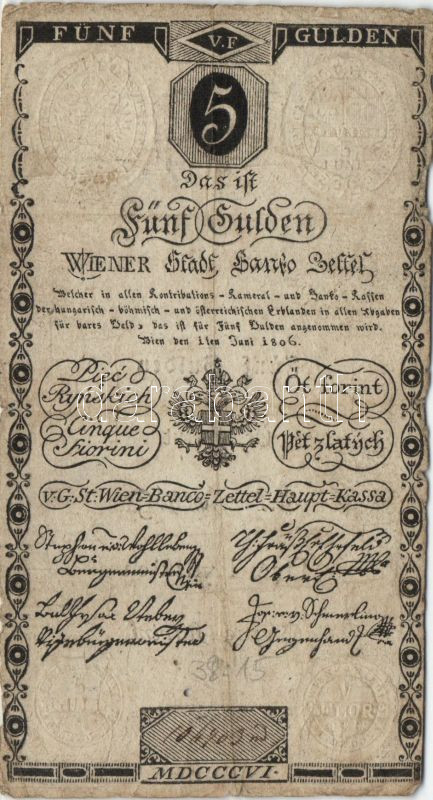 FÜNF V.F GULDEN
5
Das ist
Fünf Gulden
WIENER Stadt Banko Zettel
Welcher in allen Kontributions-Kameral-und Banko-Kassen
der hungarisch-böhmisch-und österreichischen Erblanden in allen Abgaben
für bares Geld, das ist für Fünf Gulden angenommen wird.
Wien den 1ten Juni 1806.
Pięć
Ryńskich
Öt forint
darabanth
Cinque
Fiorini
Pĕt zlatých
v. G. St. Wien-Banco=Zettel-Haupt-Kassa
Stephan
Bürgermeister
Oberk
Vizebürgermeister
Jos. v. Schmerling
Gegenhand
38.15
MDCCCVI.